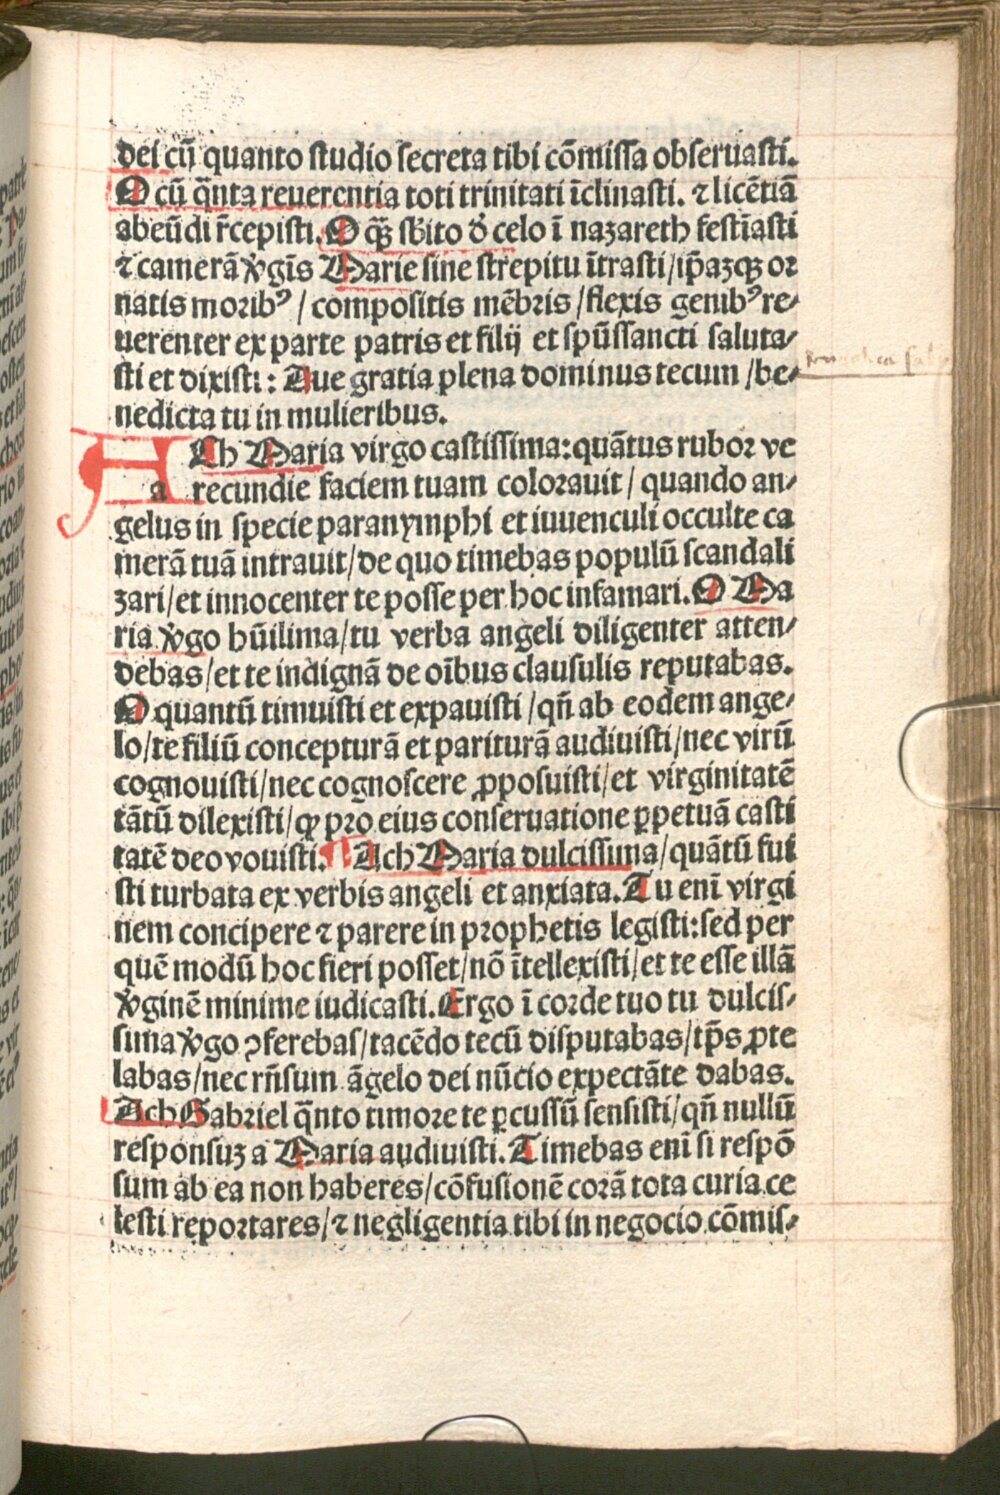 dei cū quanto studio secreta tibi cōmissa obseruasti.
O cū q̄nta reuerentia toti trinitati īclinasti. ⁊ licētiā
abeūdi r̄cepisti. O q̄ꝫ sb̄ito d̄ celo ī nazareth festīasti
⁊ camerā v̄gīs Marie sine strepitu ītrasti/ip̄azqꝫ or
natis moribꝰ/compositis mēbris/flexis genibꝰ re-
uerenter ex parte patris et filij et spūssancti saluta-
sti et dixisti: Aue gratia plena dominus tecum/be-
nedicta tu in mulieribus.
ACh Maria virgo castissima: quātus rubor ve
recundie faciem tuam colorauit/quando an-
gelus in specie paranymphi et iuuenculi occulte ca
merā tuā intrauit/de quo timebas populū scandali
zari/et innocenter te posse per hoc infamari. O Ma
ria v̄go hūilima/tu verba angeli diligenter atten-
debas/et te indignā de oībus clausulis reputabas.
O quantū timuisti et expauisti/qn̄ ab eodem ange-
lo/te filiū concepturā et pariturā audiuisti/nec virū
cognouisti/nec cognoscere ꝓposuisti/et virginitatē
tātū dilexisti/ꝙ pro eius conseruatione ꝑpetuā casti
tatē deo vouisti. ¶ Ach Maria dulcissima/quātū fui
sti turbata ex verbis angeli et anxiata. Tu enī virgi
nem concipere ⁊ parere in prophetis legisti: sed per
quē modū hoc fieri posset/nō ītellexisti/et te esse illā
v̄ginē minime iudicasti. Ergo ī corde tuo tu dulcis-
sima v̄go ꝯferebas/tacēdo tecū disputabas/tp̄s ꝓte
labas/nec rn̄sum āgelo dei nūcio expectāte dabas.
Ach Gabriel q̄nto timore te ꝑcussū sensisti/qn̄ nullū
responsuꝫ a Maria audiuisti. Timebas enī si respō
sum ab ea non haberes/cōfusionē corā tota curia ce
lesti reportares/⁊ negligentia tibi in negocio cōmis-